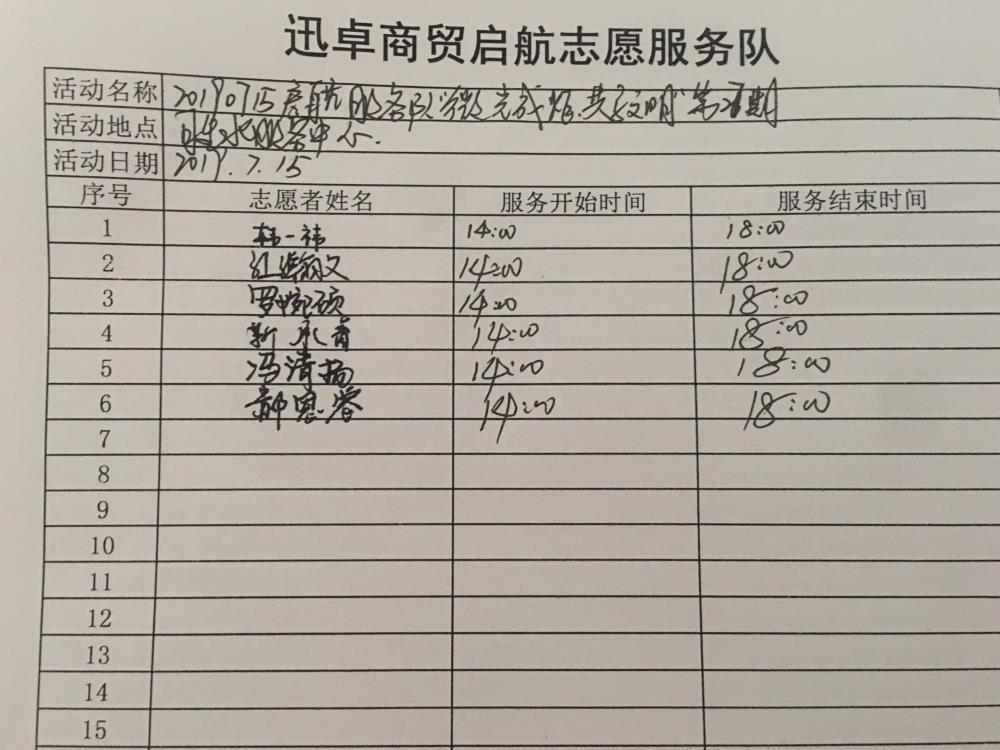 迅卓商贸启航志愿服务队
活动名称 20190715 启航服务队"微光成炬.共享文明"第 期
活动地点 服务中心.
活动日期 2019.7.15
序号 志愿者姓名 服务开始时间 服务结束时间
1 韩一祎 14:00 18:00
2 江瀚文 14:00 18:00
3 罗婉硕 14:00 18:00
4 靳承睿 14:00 18:00
5 冯清扬 14:00 18:00
6 14:00 18:00
7
8
9
10
11
12
13
14
15